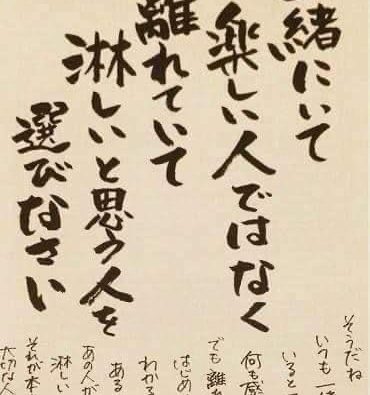 緒にいて
楽しい人ではなく
離れていて
淋しいと思う人を
選びなさい
そうだね
いつも一緒
いると
何も感
でも離
はじめ
わかる
ある
あの人が
淋しい
それが本
大切な人